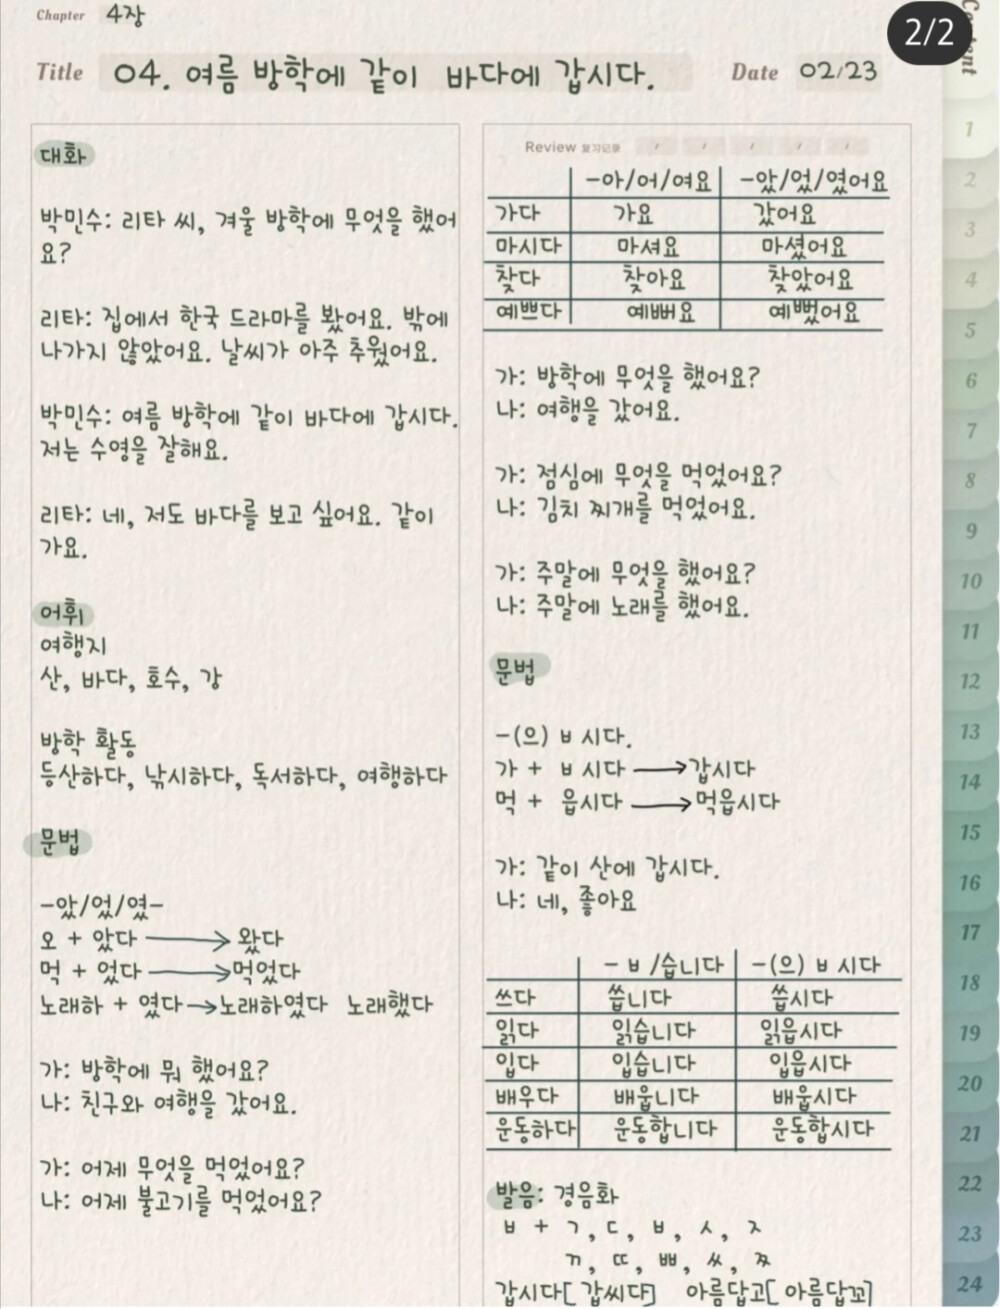 Chapter 4장
2/2
Content
Title 04. 여름 방학에 같이 바다에 갑시다. Date 02/23
대화
박민수: 리타 씨, 겨울 방학에 무엇을 했어
요?
리타: 집에서 한국 드라마를 봤어요. 밖에
나가지 않았어요. 날씨가 아주 추웠어요.
박민수: 여름 방학에 같이 바다에 갑시다.
저는 수영을 잘해요.
리타: 네, 저도 바다를 보고 싶어요. 같이
가요.
어휘
여행지
산, 바다, 호수, 강
방학 활동
등산하다, 낚시하다, 독서하다, 여행하다
문법
-았/었/였-
오 + 았다 → 왔다
먹 + 었다 → 먹었다
노래하 + 였다 → 노래하였다 노래했다
가: 방학에 뭐 했어요?
나: 친구와 여행을 갔어요.
가: 어제 무엇을 먹었어요?
나: 어제 불고기를 먹었어요?
Review 복습기록 / / / / /
-아/어/여요 -았/었/였어요
가다 가요 갔어요
마시다 마셔요 마셨어요
찾다 찾아요 찾았어요
예쁘다 예뻐요 예뻤어요
가: 방학에 무엇을 했어요?
나: 여행을 갔어요.
가: 점심에 무엇을 먹었어요?
나: 김치 찌개를 먹었어요.
가: 주말에 무엇을 했어요?
나: 주말에 노래를 했어요.
문법
-(으) ㅂ 시다.
가 + ㅂ 시다 → 갑시다
먹 + 읍시다 → 먹읍시다
가: 같이 산에 갑시다.
나: 네, 좋아요
- ㅂ /습니다 -(으) ㅂ 시다
쓰다 씁니다 씁시다
읽다 읽습니다 읽읍시다
입다 입습니다 입읍시다
배우다 배웁니다 배웁시다
운동하다 운동합니다 운동합시다
발음: 경음화
ㅂ + ㄱ, ㄷ, ㅂ, ㅅ, ㅈ
ㄲ, ㄸ, ㅃ, ㅆ, ㅉ
갑시다[ 갑씨다] 아름답고[ 아름답꼬]
1
2
3
4
5
6
7
8
9
10
11
12
13
14
15
16
17
18
19
20
21
22
23
24